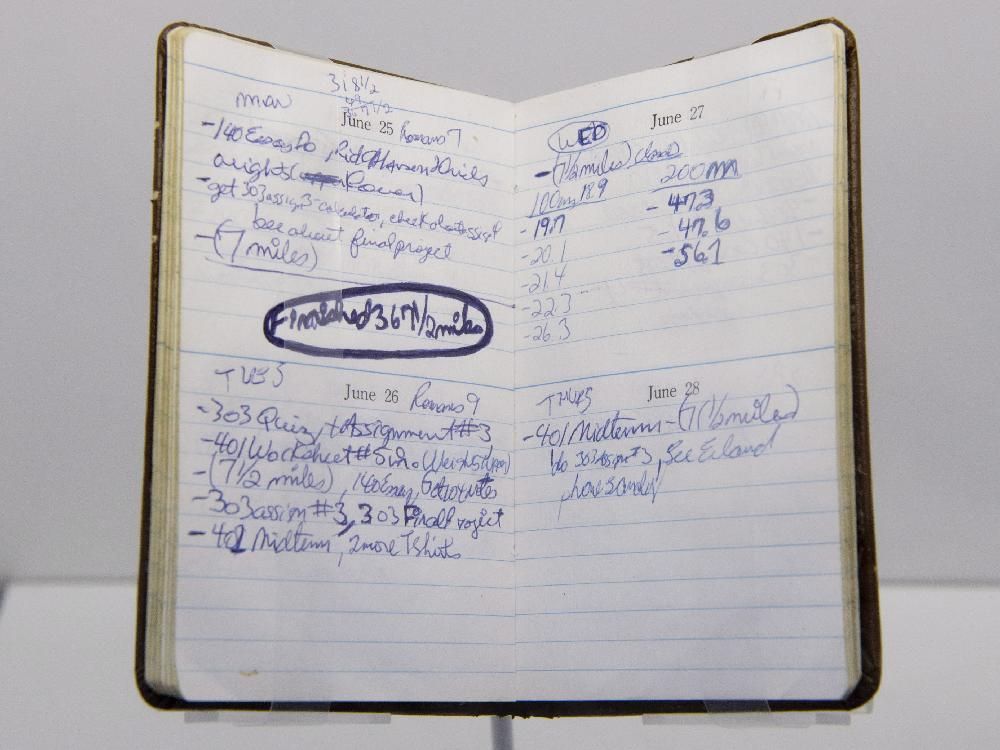 318 1/2
49
367 1/2
MON
June 25 Romans 7
-140 Essay Do,
weights ( Power)
-get 303 assig 3-calculator, check
see about final project
-(7 miles)
Finished 367 1/2 miles
TUES
June 26 Romans 9
-303 Quiz, + Assignment #3
-401 Worksheet #5 Weights (Upper)
-(7 1/2 miles), 140 Essay, notes
-303 assign #3, 303 Final Project
-402 Midterm, 2 more T Shirts
June 27
WED
-(7 1/2 miles)
100m 18.9
-19.7
-20.1
-21.4
-22.3
-26.3
200m
-47.3
-47.6
-56.1
June 28
THURS
-401 Midterm-(7 1/2 miles)
do 303 assign #3, See